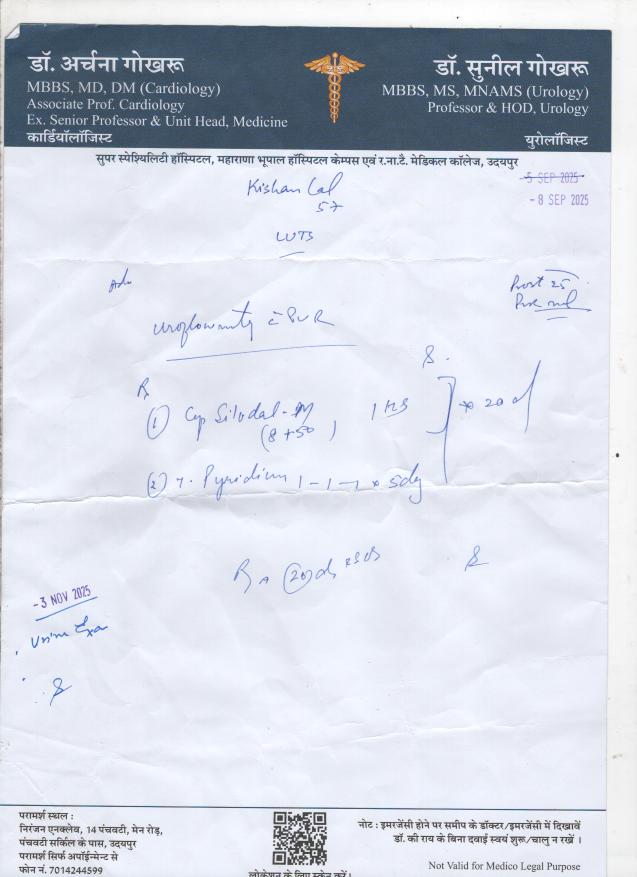 डॉ. अर्चना गोखरू
MBBS, MD, DM (Cardiology)
Associate Prof. Cardiology
Ex. Senior Professor & Unit Head, Medicine
कार्डियॉलॉजिस्ट
डॉ. सुनील गोखरू
MBBS, MS, MNAMS (Urology)
Professor & HOD, Urology
यूरोलॉजिस्ट
सुपर स्पेश्यिलिटी हॉस्पिटल, महाराणा भूपाल हॉस्पिटल केम्पस एवं र.ना.टै. मेडिकल कॉलेज, उदयपुर
5 SEP 2025
- 8 SEP 2025
Kishan Lal
57
LUTS
Adv
Prost 25
PVR nil
Uroflowmetry c̄ PVR
Rx
(1) Cap Silodal-M 1 HS
(8+50) x 20 d
(2) T. Pyridium 1-1-1 x 5 day
20
-3 NOV 2025
Urine Exa
परामर्श स्थल :
निरंजन एनक्लेव, 14 पंचवटी, मेन रोड़,
पंचवटी सर्किल के पास, उदयपुर
परामर्श सिर्फ अपॉईन्मेन्ट से
फोन नं. 7014244599
लोकेशन के लिए स्केन करें।
नोट : इमरजेंसी होने पर समीप के डॉक्टर/इमरजेंसी में दिखावें
डॉ. की राय के बिना दवाई स्वयं शुरू/चालु न रखें ।
Not Valid for Medico Legal Purpose